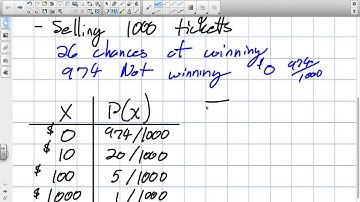 - Selling 1000 ticketts
26 chances of winning
974 Not winning $0 974/1000
X P(x)
$0 974/1000
$10 20/1000
$100 5/1000
$1000 1/1000